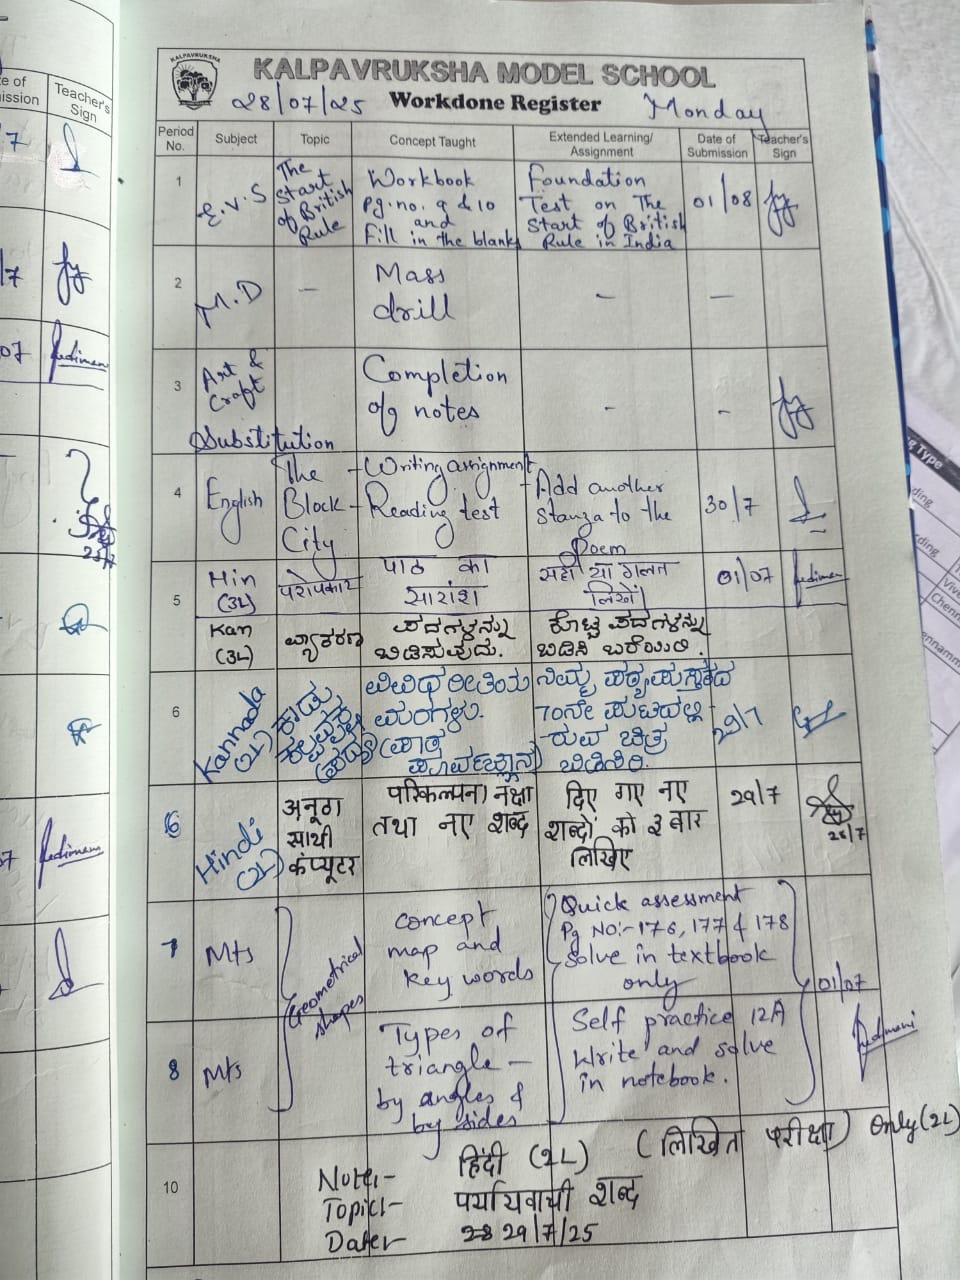 KALPAVRUKSHA
KALPAVRUKSHA MODEL SCHOOL
28/07/25 Workdone Register Monday
Period No. Subject Topic Concept Taught Extended Learning/ Assignment Date of Submission Teacher's Sign
1 E.V.S The Start of British Rule Workbook Pg.no. 9 & 10 and Fill in the blanks Foundation Test on The Start of British Rule in India 01/08
2 M.D – Mass drill – –
3 Art & Craft Completion of notes - -
Substitution
4 English The Block City – Writing assignment – Reading test – Add another Stanza to the Poem 30/7
5 Hin (3L) परोपकार पाठ का सारांश सही या गलत लिखें। 01/07
Kan (3L) ವ್ಯಾಕರಣ ಪದಗಳನ್ನು ಬಿಡಿಸುವುದು. ಕೊಟ್ಟ ಪದಗಳನ್ನು ಬಿಡಿಸಿ ಬರೆಯಿರಿ.
6 Kannada (2L) ಕಾಡು (ಪದ್ಯ) ವಿವಿಧ ರೀತಿಯ ಮರಗಳು. (ಪಾಠ ಪೂರ್ವಜ್ಞಾನ) ನಿಮ್ಮ ಪಠ್ಯಪುಸ್ತಕದ 70ನೇ ಪುಟದಲ್ಲಿರುವ ಚಿತ್ರ ಬಿಡಿಸಿರಿ. 29/7
6 Hindi (2L) अनूठा साथी कंप्यूटर परिकल्पना नक्षा तथा नए शब्द दिए गए नए शब्दों को ३ बार लिखिए 29/7
28/7
7 Mts Geometrical shapes concept map and key words Quick assessment Pg No:- 176, 177 & 178 Solve in textbook only 01/07
8 Mts Types of triangle – by angles & by sides Self practice 12A Write and solve in notebook.
10 Note:- हिंदी (2L) (लिखित परीक्षा) Only (2L)
Topic:- पर्यायवाची शब्द
Date:- 28 29/7/25
te of ission Teacher's Sign
/7
/7
07
25/7
07
g Type
ding
ding
Chenn
ennamm